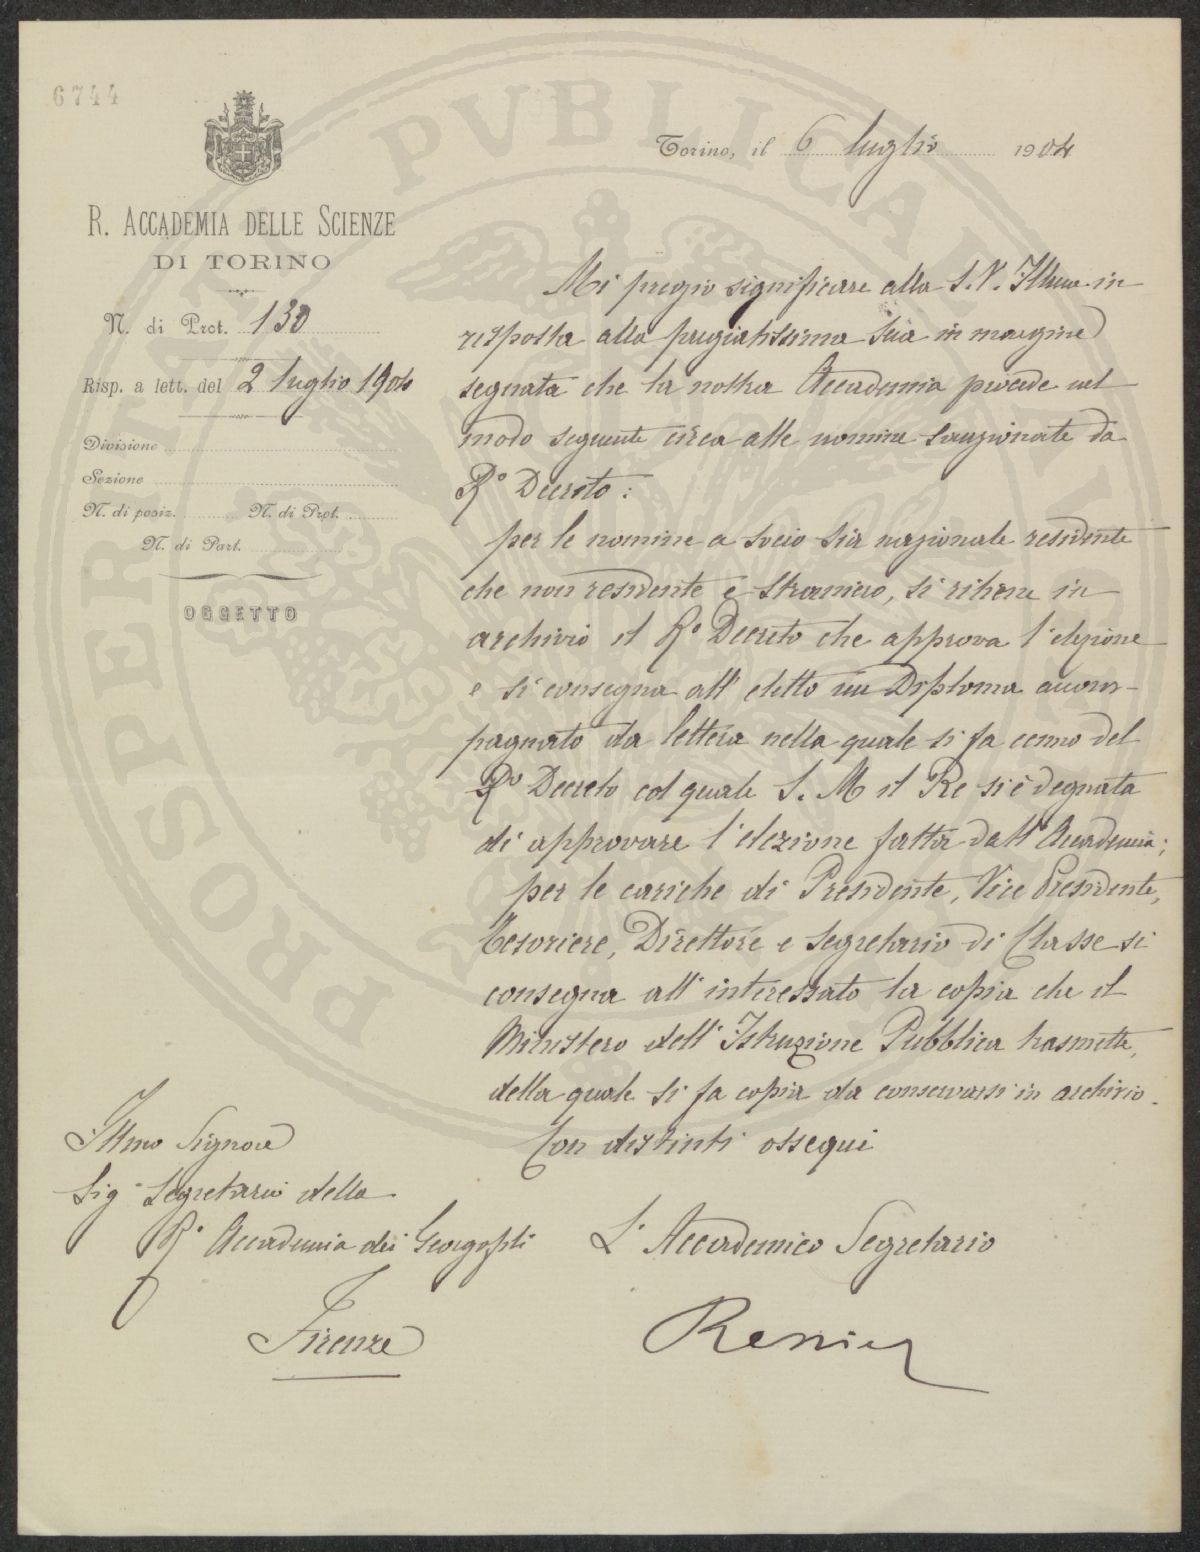 6744
R. ACCADEMIA DELLE SCIENZE
DI TORINO
N. di Prot. 130
Risp. a lett. del 2 luglio 1904
Divisione
Sezione
N. di posiz. N. di Prot.
N. di Part.
OGGETTO
Torino, il 6 luglio 1904
Mi pregio significare alla S. V. Illma in
risposta alla pregiatissima Sua in margine
segnata che la nostra Accademia procede nel
modo seguente circa alle nomine sanzionate da
Rº Decreto:
per le nomine a socio sia nazionale residente
che non residente e straniero, si ritiene in
archivio il Rº Decreto che approva l'elezione
e si consegna all' eletto un Diploma accom-
pagnato da lettera nella quale si fa cenno del
Rº Decreto col quale S. M il Re si è degnata
di approvare l'elezione fatta dall'Accademia;
per le cariche di Presidente, Vice Presidente,
Tesoriere, Direttore e Segretario di Classe si
consegna all'interessato la copia che il
Ministero dell'Istruzione Pubblica trasmette,
della quale si fa copia da conservarsi in archivio.
Con distinti ossequi
L'Accademico Segretario
Renier
Illmo Signore
Sig Segretario della
Rª Accademia dei Georgofili
Firenze
PROSPERITATI PVBLICAE AVGENDAE